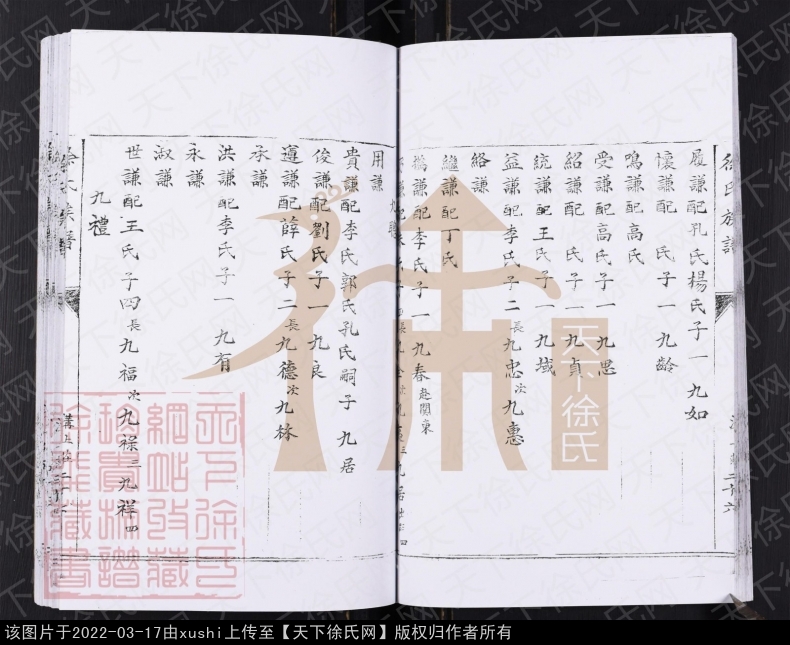 徐氏族譜
履謙配孔氏楊氏子一 九如
懷謙配 氏子一 九齡
鳴謙配高氏
受謙配高氏子一 九思
紹謙配 氏子一 九貞
統謙配王氏子一 九域
益謙配李氏子二長九忠次九惠
絡謙
繼謙配丁氏
撝謙配李氏子一 九春赴關東
用謙
貴謙配李氏郭氏孔氏嗣子 九居
俊謙配劉氏子一 九良
遵謙配薛氏子二長九德次九林
承謙
洪謙配李氏子一 九有
永謙
淑謙
世謙配王氏子四長九福次九祿三九祥四
九禮
天下徐氏
天下徐氏網站收藏
该图片于2022-03-17由xushi上传至【天下徐氏网】版权归作者所有